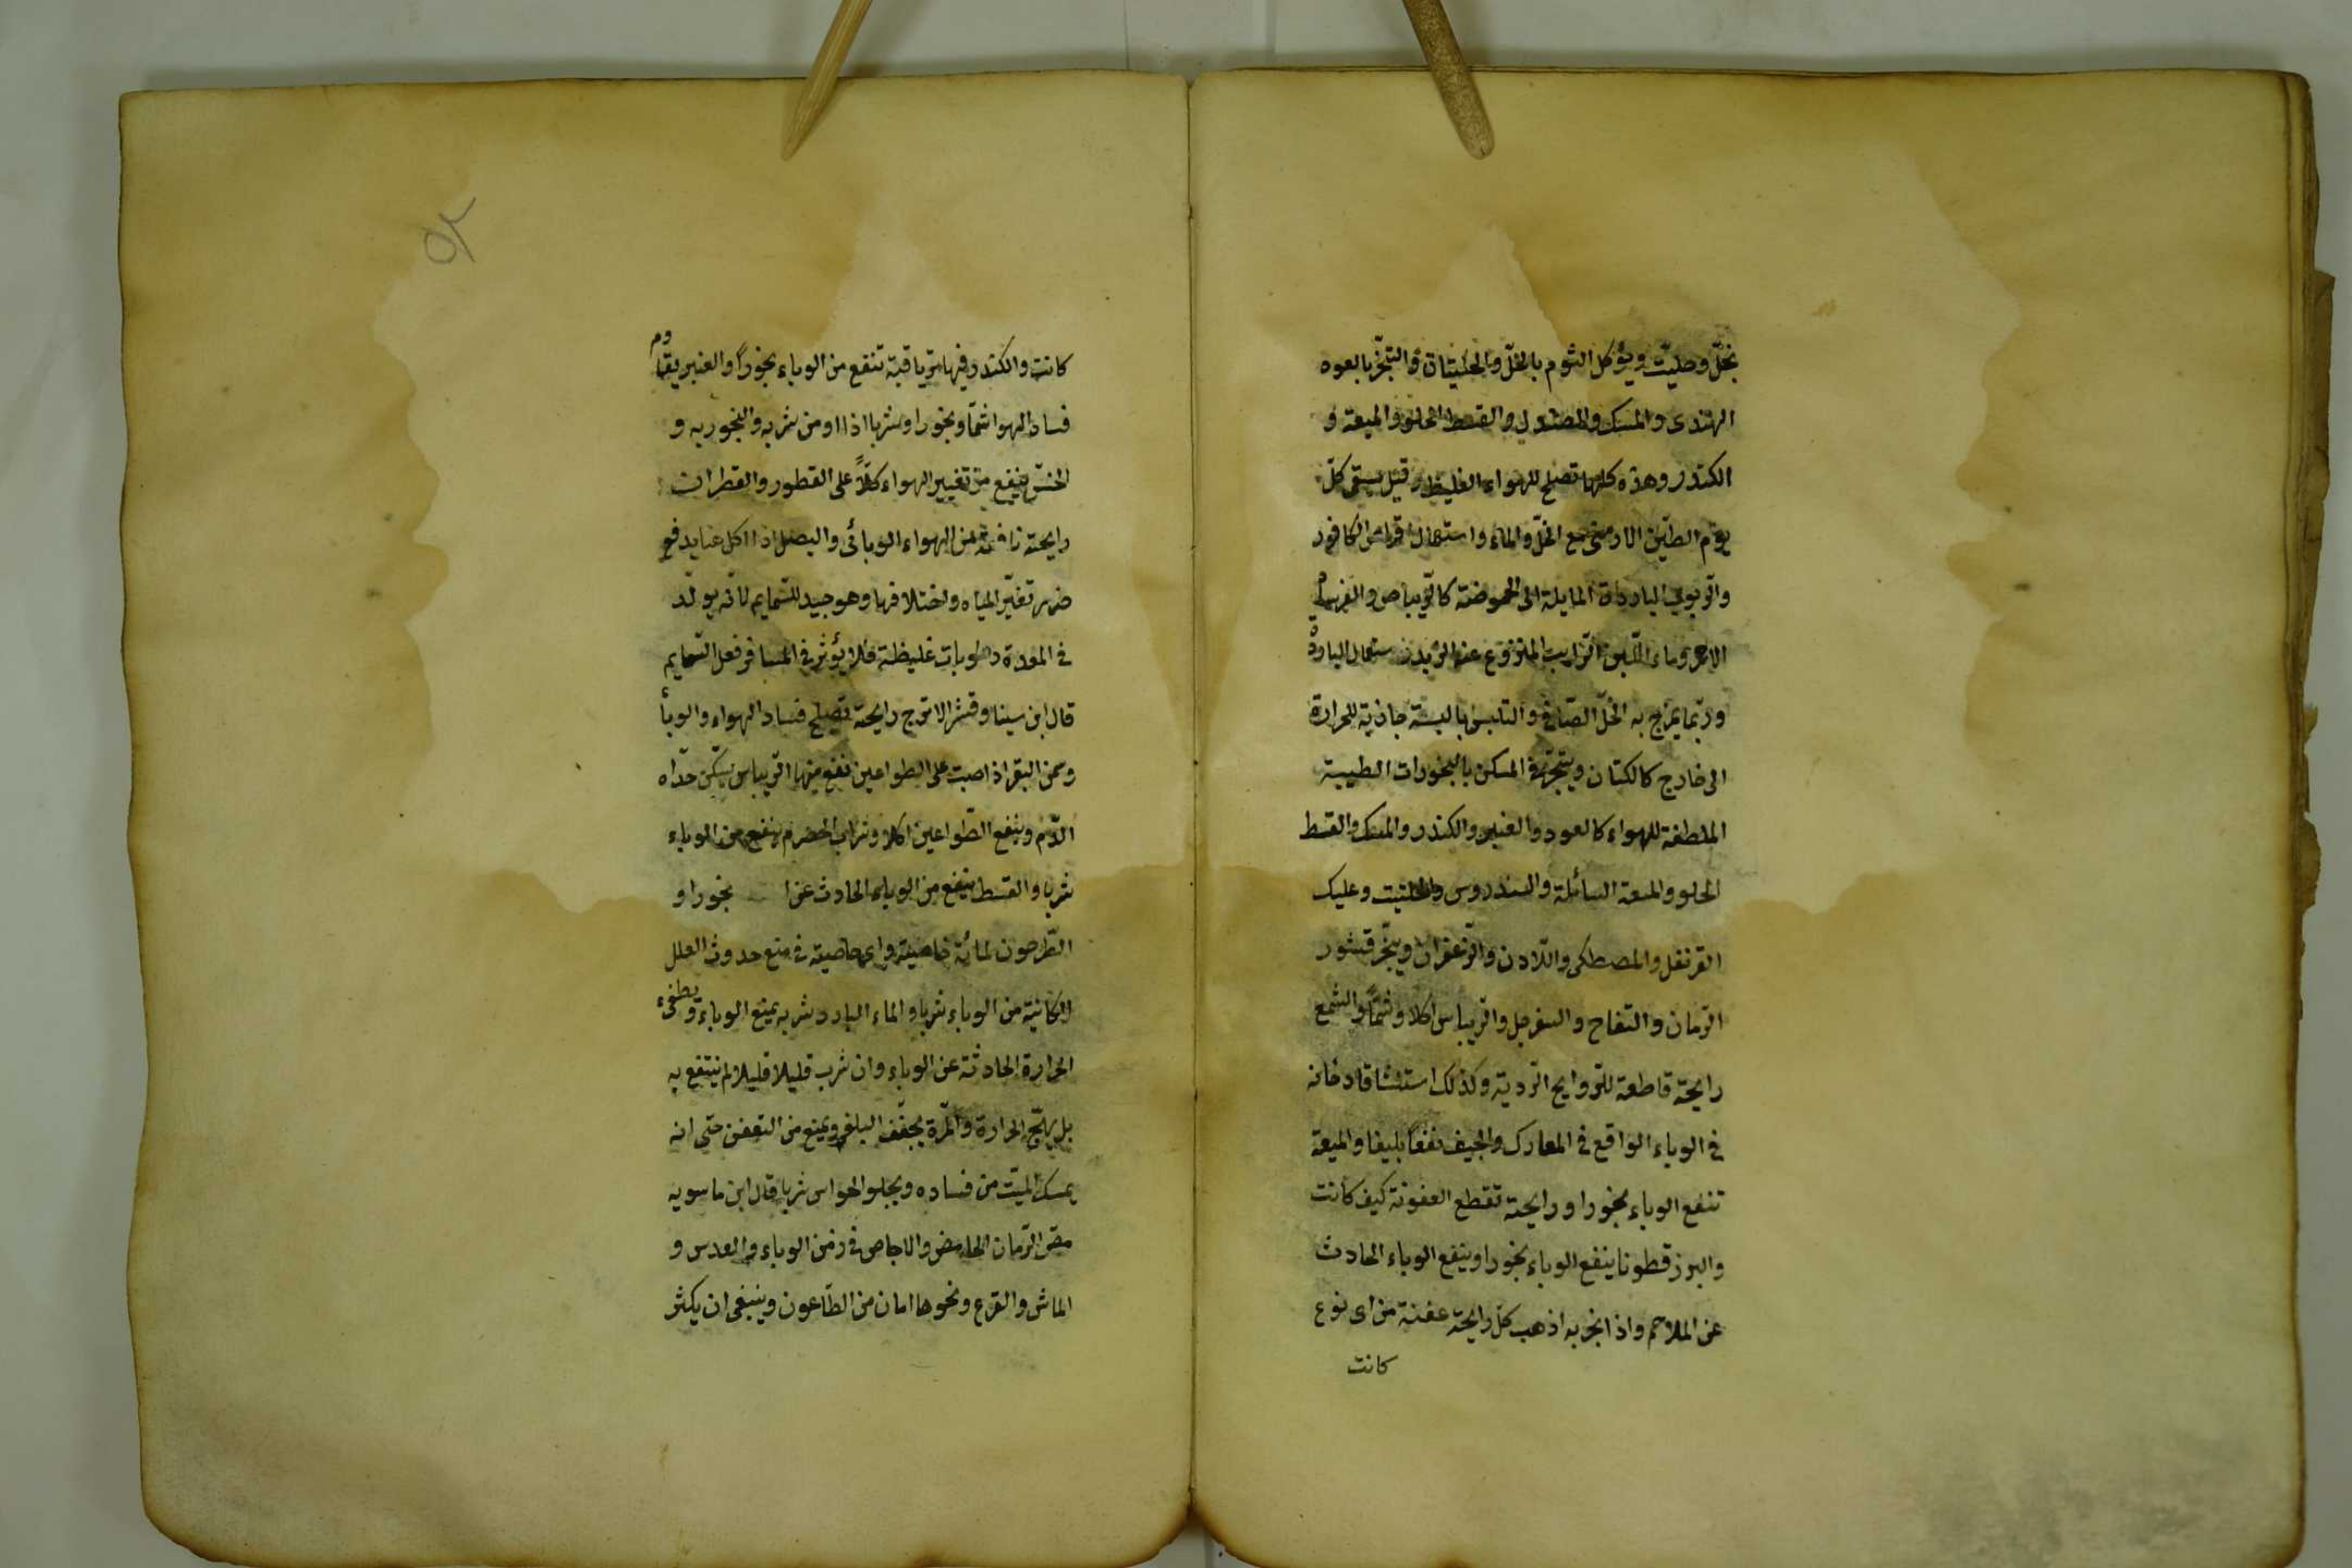 بخلّ وحليّت ويؤكل الثوم بالخلّ والحليتات والتبخّر بالعود
الهندى والمسك والصندل والقسط الحلو والميعة و
الكندر وهذه كلها تصلح للهواء الغليظ وقيل يسقى كلّ
يوم الطين الارمنى مع الخلّ والماء واستعمال اقراص الكافور
والربوب الباردات المايلة الى الحموضة كالريباص و
الاحمر وماء اللبن الرايب المنزوع عنه الزبد استعمال الباردة
وربّما يمزج به الخلّ الصّافى والتلبس بالبسة جاذبة للحرارة
الى خارج كالكتان ويتبخّر فى المسكن بالبخورات الطيبة
الملطفة للهواء كالعود والعنبر والكندر والمسك والقسط
الحلو والميعة السائلة والسندروس والحلتيت وعليك
القرنفل والمصطكى واللّادن والزعفران ويبخّر قشور
الرمان والتفاح والسفرجل والريباس اكلا وشمّاً والشمع
رايحته قاطعة للروايح الردية وكذلك استنشاقا دخانه
فى الوباء الواقع فى المعارك والجيف نفعاً بليغا والميعة
تنفع الوباء بخورا ورايحته تقطع العفونة كيف كانت
والبرزقطونا ينفع الوباء بخورا وينفع الوباء الحادث
عن الملاحم واذا بخر به اذهب كلّ رايحة عفنة من اى نوع
كانت
٥٢
كانت والكندر فيها ترياقية تنفع من الوباء بخوراً والعنبر يقاوم
فساد الهوا شمّا وبخورا وشربا اذا اومن شربه والبخور به و
الخسّ ينفع من تغيير الهواء كلاً على الفطور والقطران
رايحته نافعة من الهواء الوبائى والبصل اذا اكل يدفع
ضرر تغيّر المياه واختلافها وهو جيد للسمايم لانّه يولّد
فى المعدة رطوبات غليظة فلا يؤثر فى المسافر فعل السمايم
قال ابن سينا وقشر الاترج رايحته تصلح فساد الهواء والوبأ
وسمن البقر اذا صبت على الطواعين نفع منها الريباس يسكّن حدّاه
الدّم وينفع الطواعين اكلا وشراب الحصرم ينفع من الوباء
شربا والقسط ينفع من الوباء الحادث عن ا بخورا و
الطرحون لمائه خاصيّة واى خاصيته فى منع حدوث العلل
الكائنة من الوباء شربا والماء البارد شربه يمنع الوباء ويطفىء
الحرارة الحادثة عن الوباء وان شرب قليلا قليلا لم ينتفع به
بل يهيّج الحرارة والمرّة يجفّف البلغم ويمنع من التعفن حتى انه
يمسك الميّت من فساده ويجلو الحواس شربا قال ابن ماسويه
مصّ الرّمان الحامض والاجاص فى زمن الوباء والعدس و
الماش والقرع ونحوها امان من الطّاعون وينبغى ان يكثر